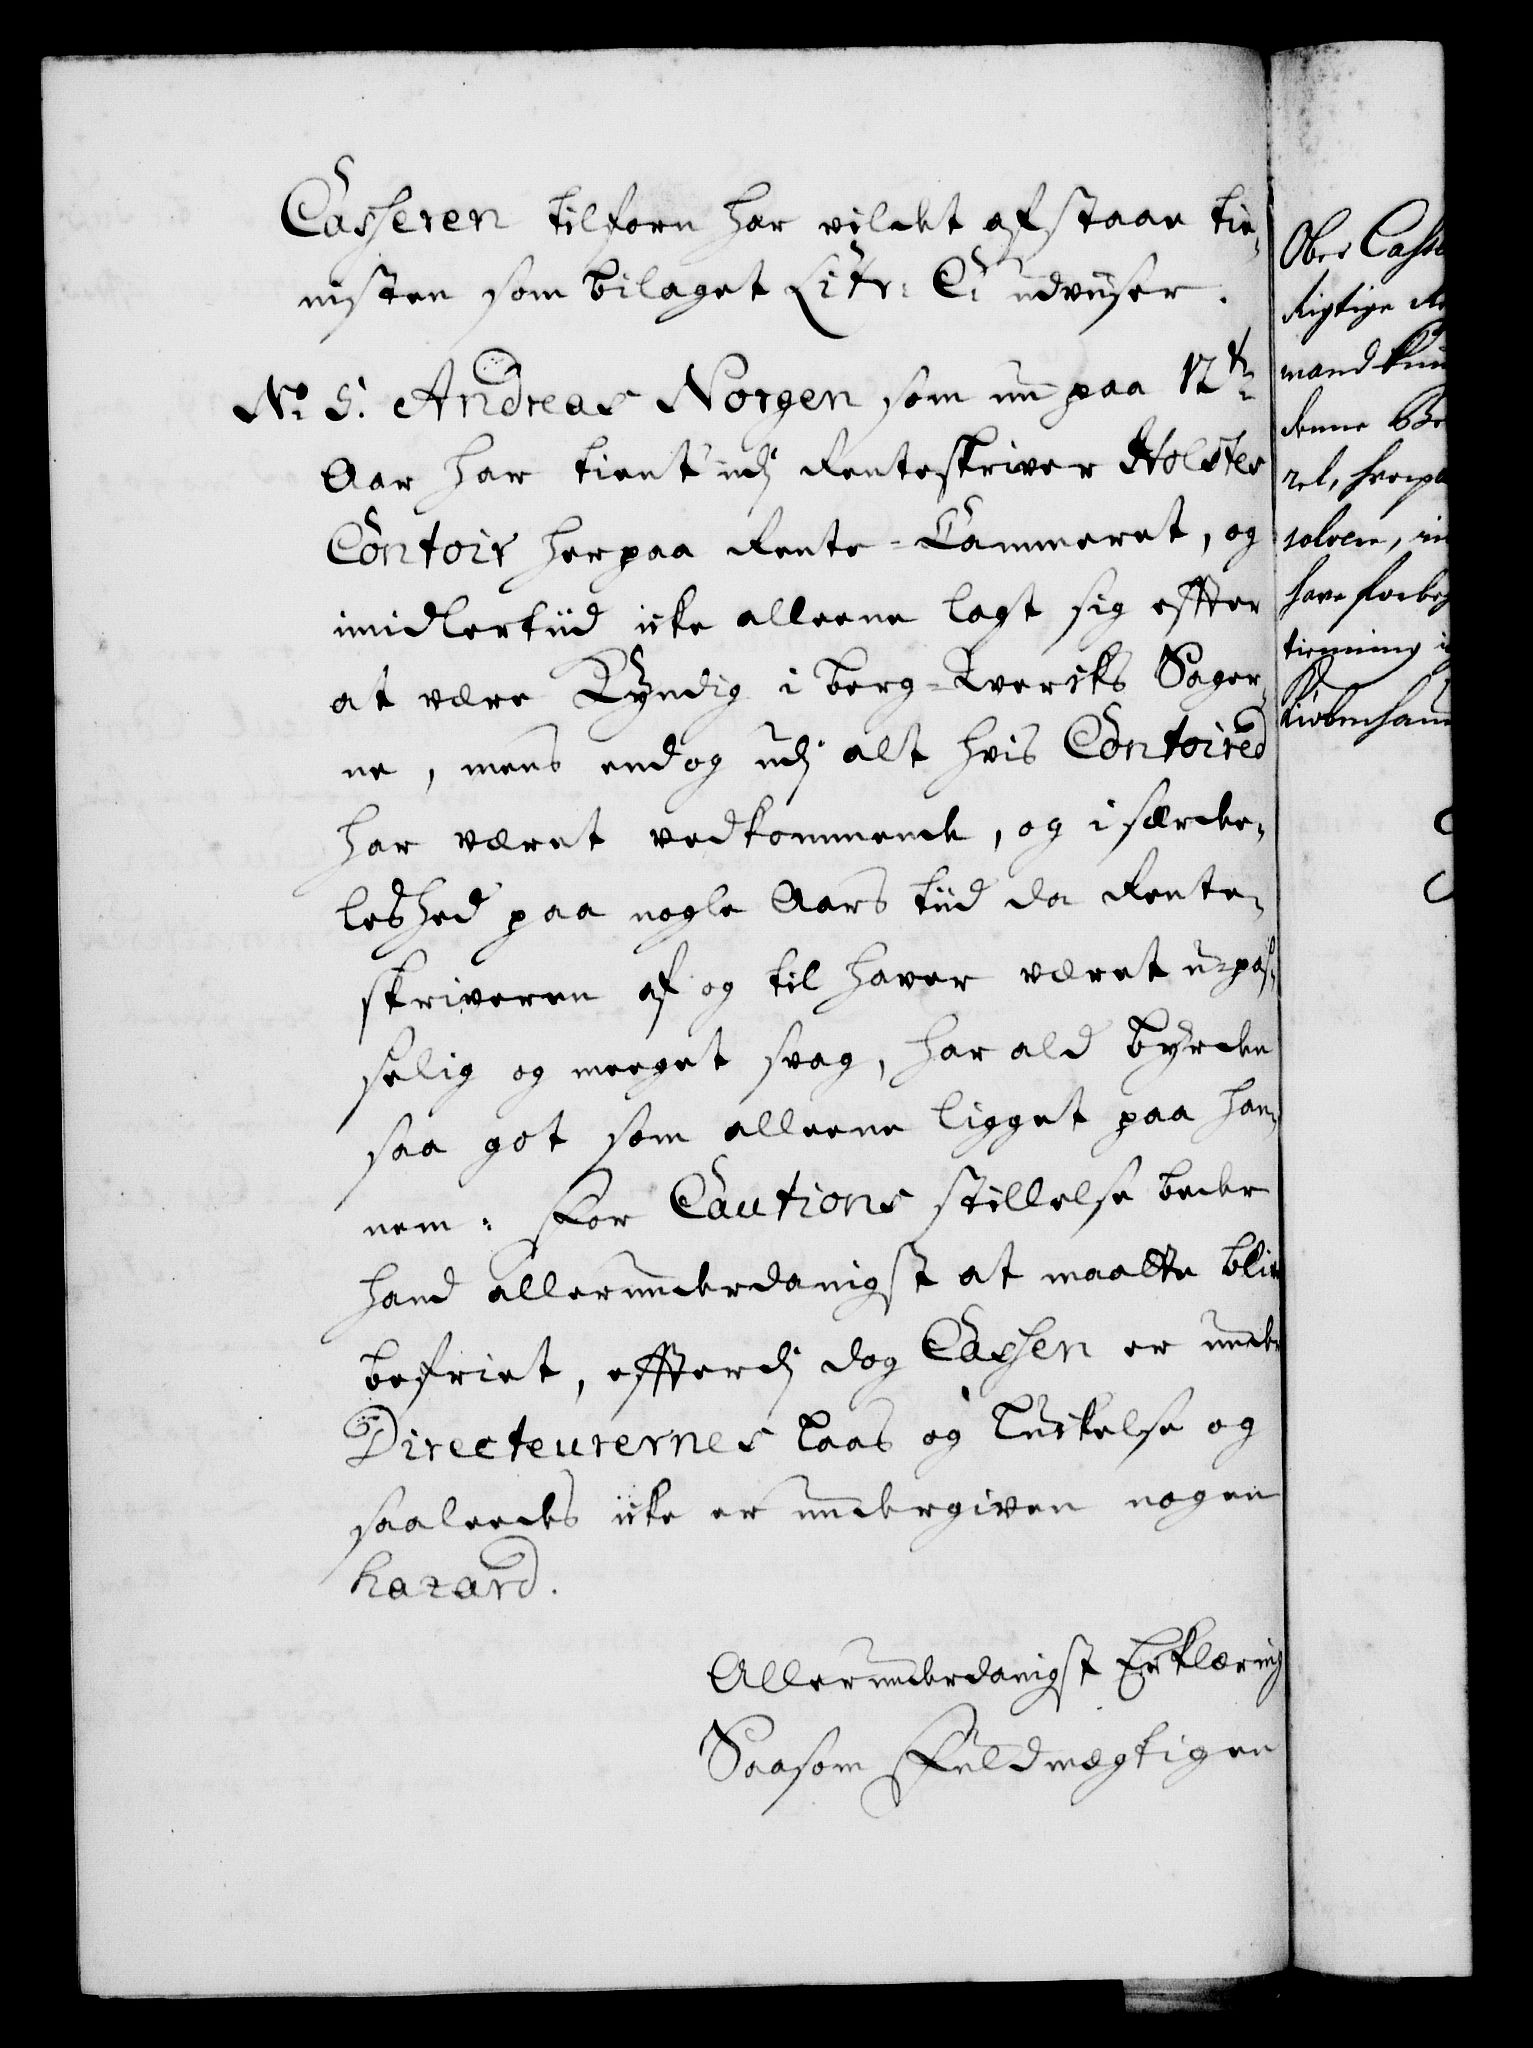 Casseren tilforn har vildet afstaae tie¬
nisten som bilaget Litr: C: udviiser.
No. 5. Andreas Norgen som nu paa 12te
Aar har tient udj Renteskriver Holstes
Contoir her paa Rente-Cammeret, og
imidlertiid icke alleene lagt sig effter
at være Kyndig i berg-Kvercks Sager¬
ne, mens endog udj alt hvis Contoired
har været vedkommende, og i særde¬
leshed paa nogle Aars tiid da Rente¬
skriveren af og til haver været u-pas¬
selig og meeget svag, har ald byrden
saa got som alleene ligget paa han¬
nem: For Cautions stillelse beder
hand allerunderdanigst at maatte bliv
befriet, effterdj dog Cassen er under
Directeurernes Laas og Luckelse og
saaleedes icke er undergiven nogen
hazard.
Allerunderdanigst Erklæring
Saasom Fuldmægtigen
Ober Casse
Rigtige Re
mand kun
denne Be
ret, hvorpaa
solven, in
have forbe
tienning i
Kiøbenhavn